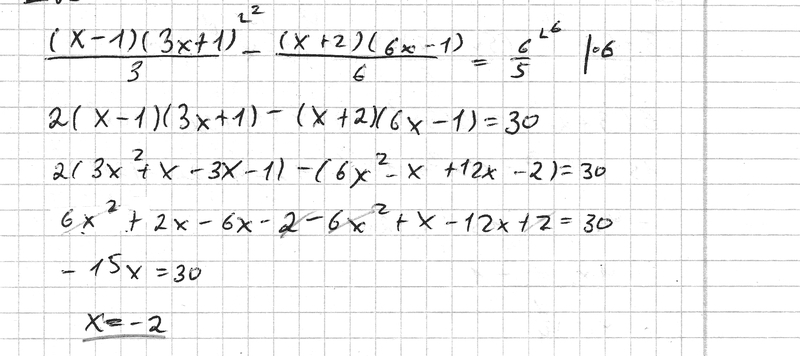 (x-1)(3x+1)/3 ∟2 - (x+2)(6x-1)/6 = 6/5 ∟6 |·6
2(x-1)(3x+1)-(x+2)(6x-1)=30
2(3x²+x-3x-1)-(6x²-x+12x-2)=30
6x²+2x-6x-2-6x²+x-12x+2=30
-15x=30
x=-2